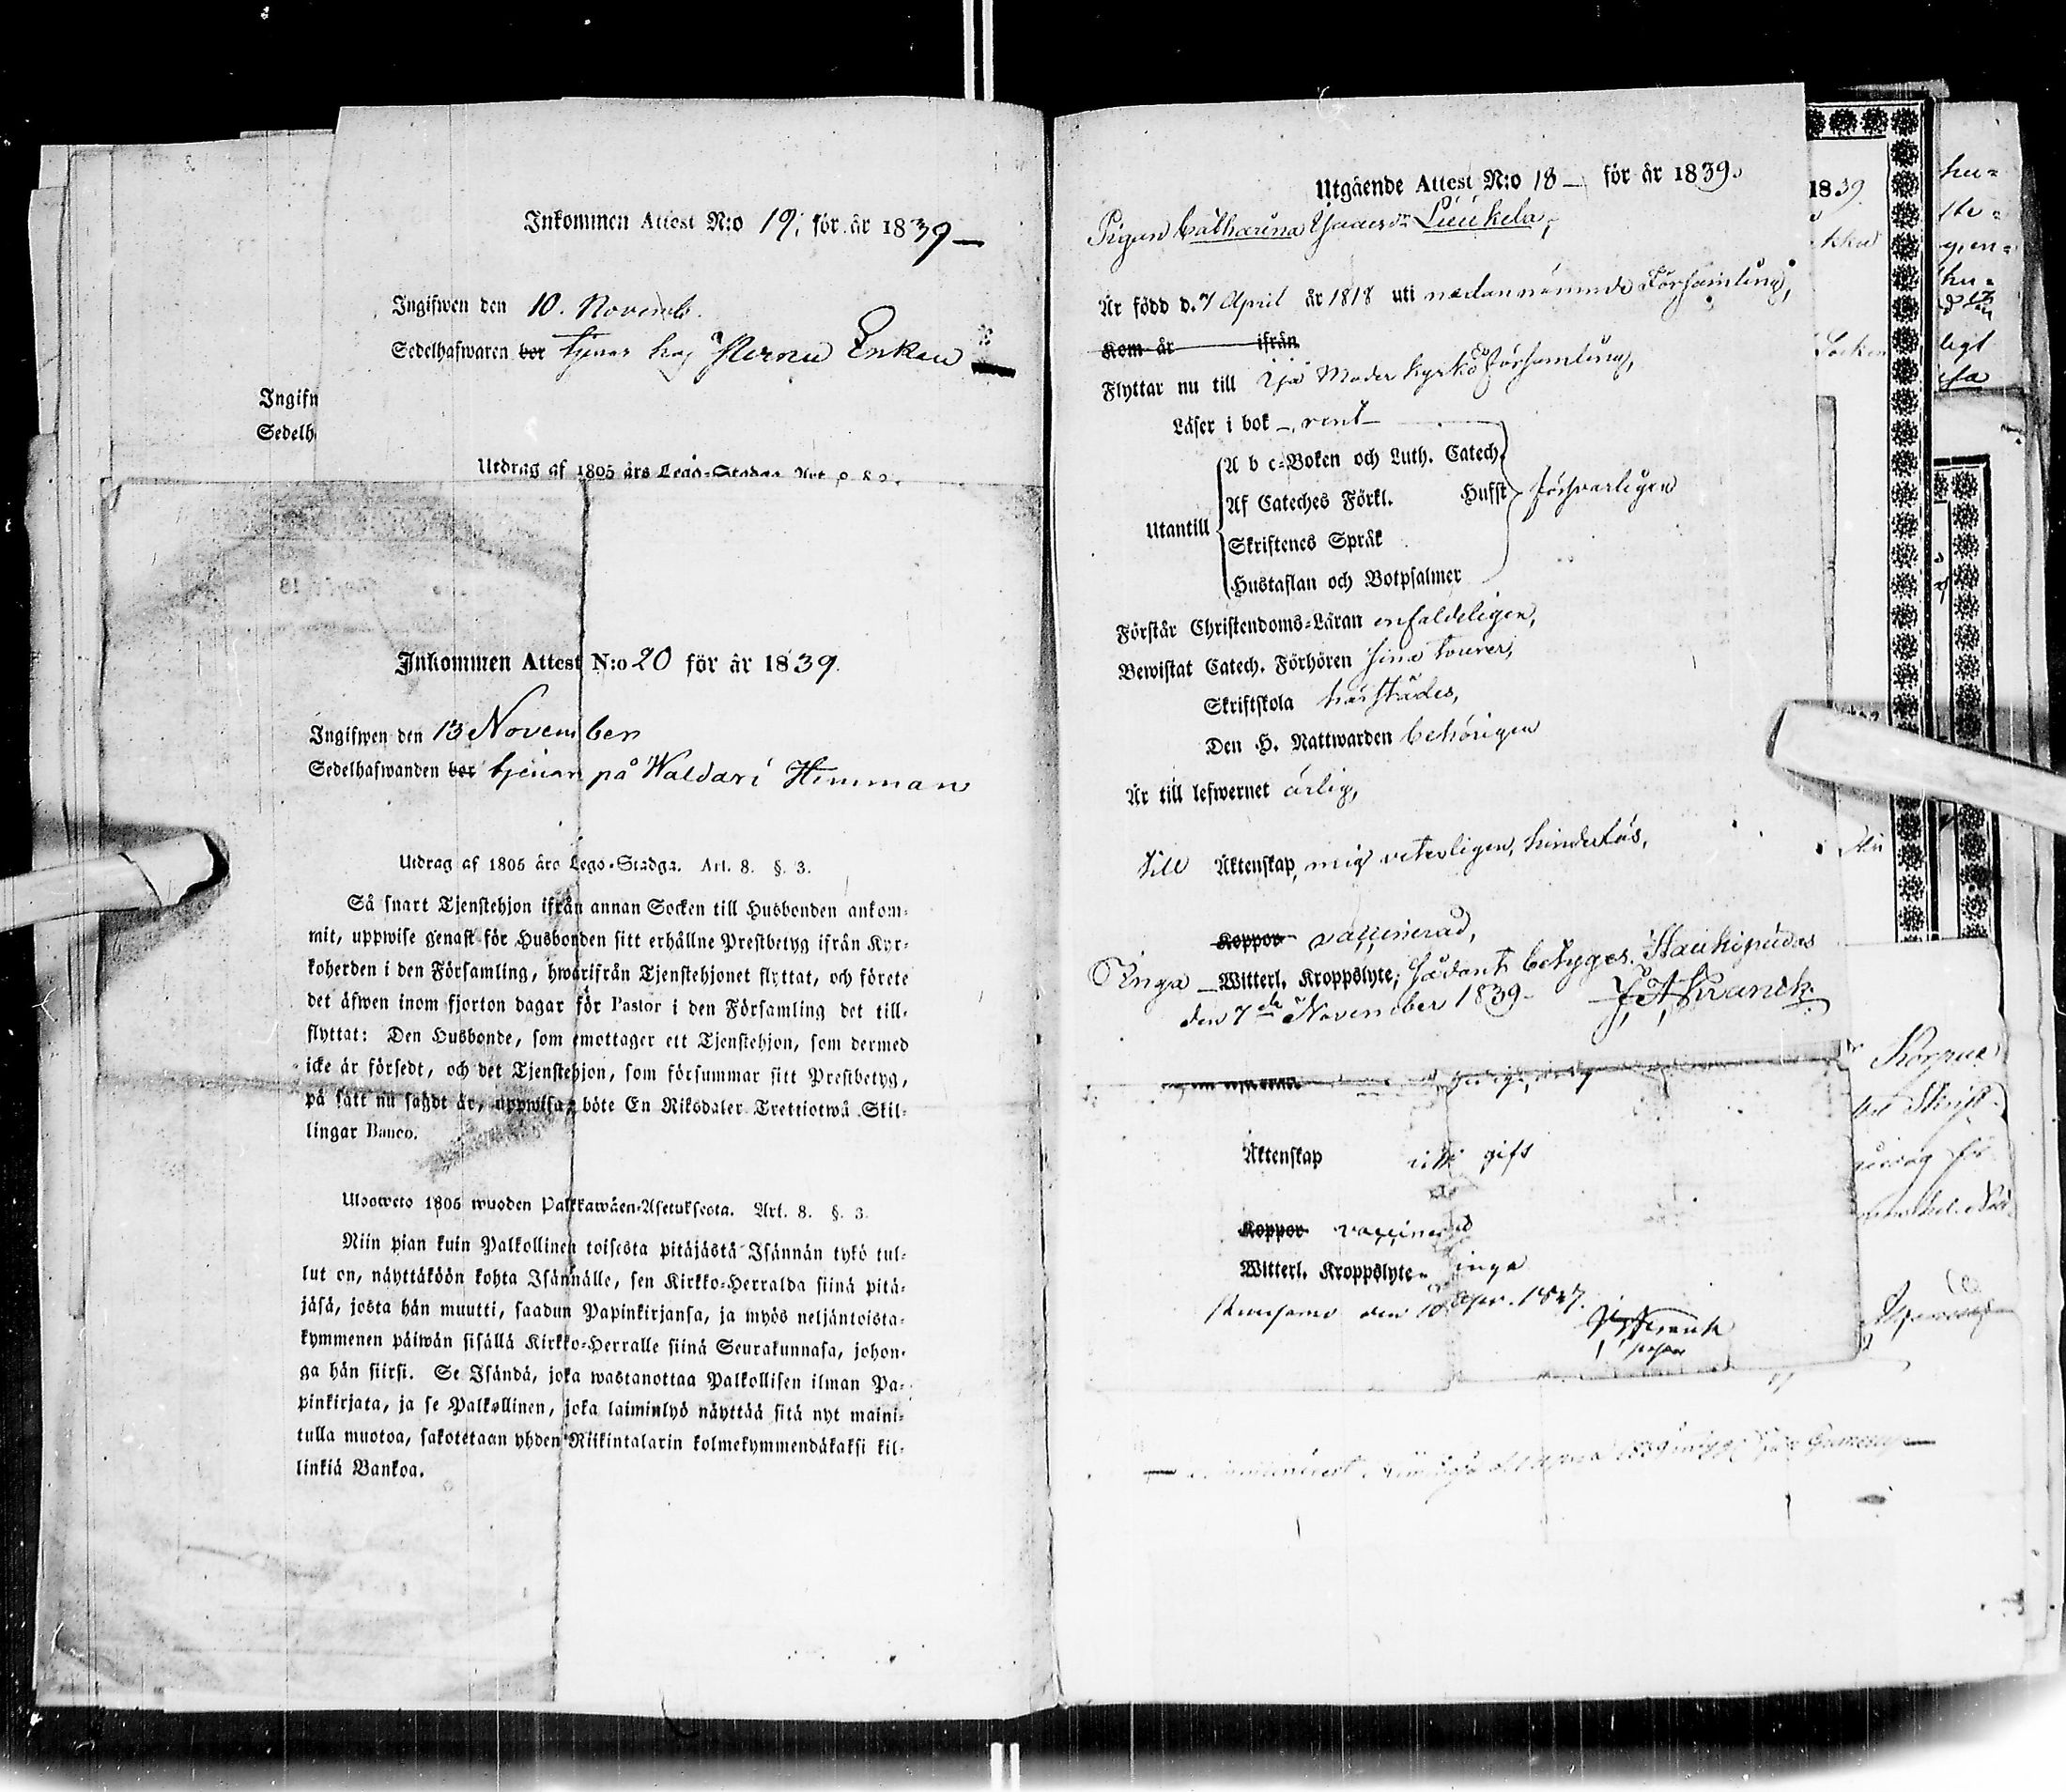 Inkommen Attest N:o 19, för år 1839
Ingifwen den 10. Novemb.
Sedelhafwaren bor tjenar hos Enkan
Ingifw
Sedelh
Utdrag af 1805 års Lego-Stadga Art 8 § 3.
Inkommen Attest N:o 20 för år 1839.
Ingifwen den 13 November
Sedelhafwanden bor tjenar på Waldari Hemman
Utdrag af 1805 års Lego-Stadga. Art. 8. §. 3.
Så snart Tjenstehjon ifrån annan Socken till Husbonden ankom-
mit, uppwise genast för Husbonden sitt erhållne Prestbetyg ifrån Kyr-
koherden i den Församling, hwarifrån Tjenstehjonet flyttat, och förete
det äfwen inom fjorton dagar för Pastor i den Församling det till-
flyttat: Den Husbonde, som emottager ett Tjenstehjon, som dermed
icke är försedt, och det Tjenstehjon, som försummar sitt Prestbetyg,
på sätt nu sagdt är, uppwisa, böte En Riksdaler Trettiotwå Skil-
lingar Banco.
Ulosweto 1805 wuoden Palkkawäen-Asetuksesta. Art. 8. §. 3.
Niin pian kuin Palkollinen toisesta pitäjästä Isännän tykö tul-
lut on, näyttäköön kohta Isännälle, sen Kirkko-Herralda siinä pitä-
jäsä, josta hän muutti, saadun Papinkirjansa, ja myös neljäntoista-
kymmenen päiwän sisällä Kirkko-Herralle siinä Seurakunnasa, johon-
ga hän siirsi. Se Isändä, joka wastanottaa Palkollisen ilman Pa-
pinkirjata, ja se Palkollinen, joka laiminlyö näyttää sitä nyt maini-
tulla muotoa, sakotetaan yhden Riikintalarin kolmekymmendäkaksi kil-
linkiä Bankoa.
Utgående Attest N:o 18 för år 1839.
Pigan Catharina Isaacsdr Liuikela,
Är född d. 7 April år 1818 uti nedannämnde Församling,
Kom år ifrån
Flyttar nu till Ijo Moder Kyrko Församling,
Läser i bok rent
A b c-Boken och Luth. Catech.
Af Cateches Förkl. Hufst
försvarligen
Utantill
Skriftenes Språk
Hustaflan och Botpsalmer
Förstår Christendoms-Läran enfaldeligen,
Bewistat Catech. Förhören sina tourer,
Skriftskola härstädes,
Den H. Nattwarden behörigen
Är till lefwernet ärlig,
till Äktenskap, mig veterligen, hinderlös,
Koppor vaccinerad,
Inga Witterl. Kroppslyte; sådant betygar. Haukipudas
den 7de November 1839. J A Franck
Äktenskap gift
Koppor vaccinerad
Witterl. Kroppslyte inga
1839
1839
Socken
ligt